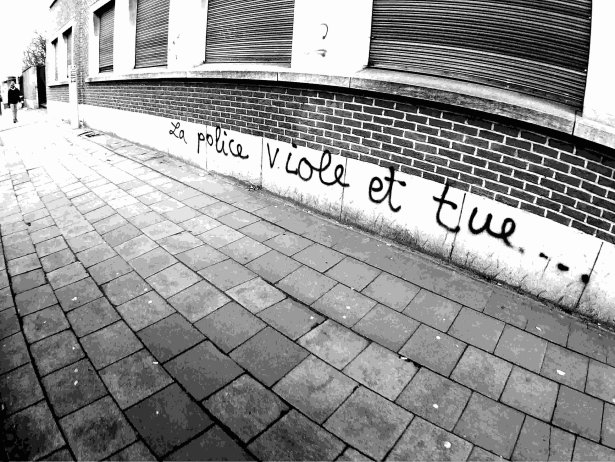 La police viole et tue.....